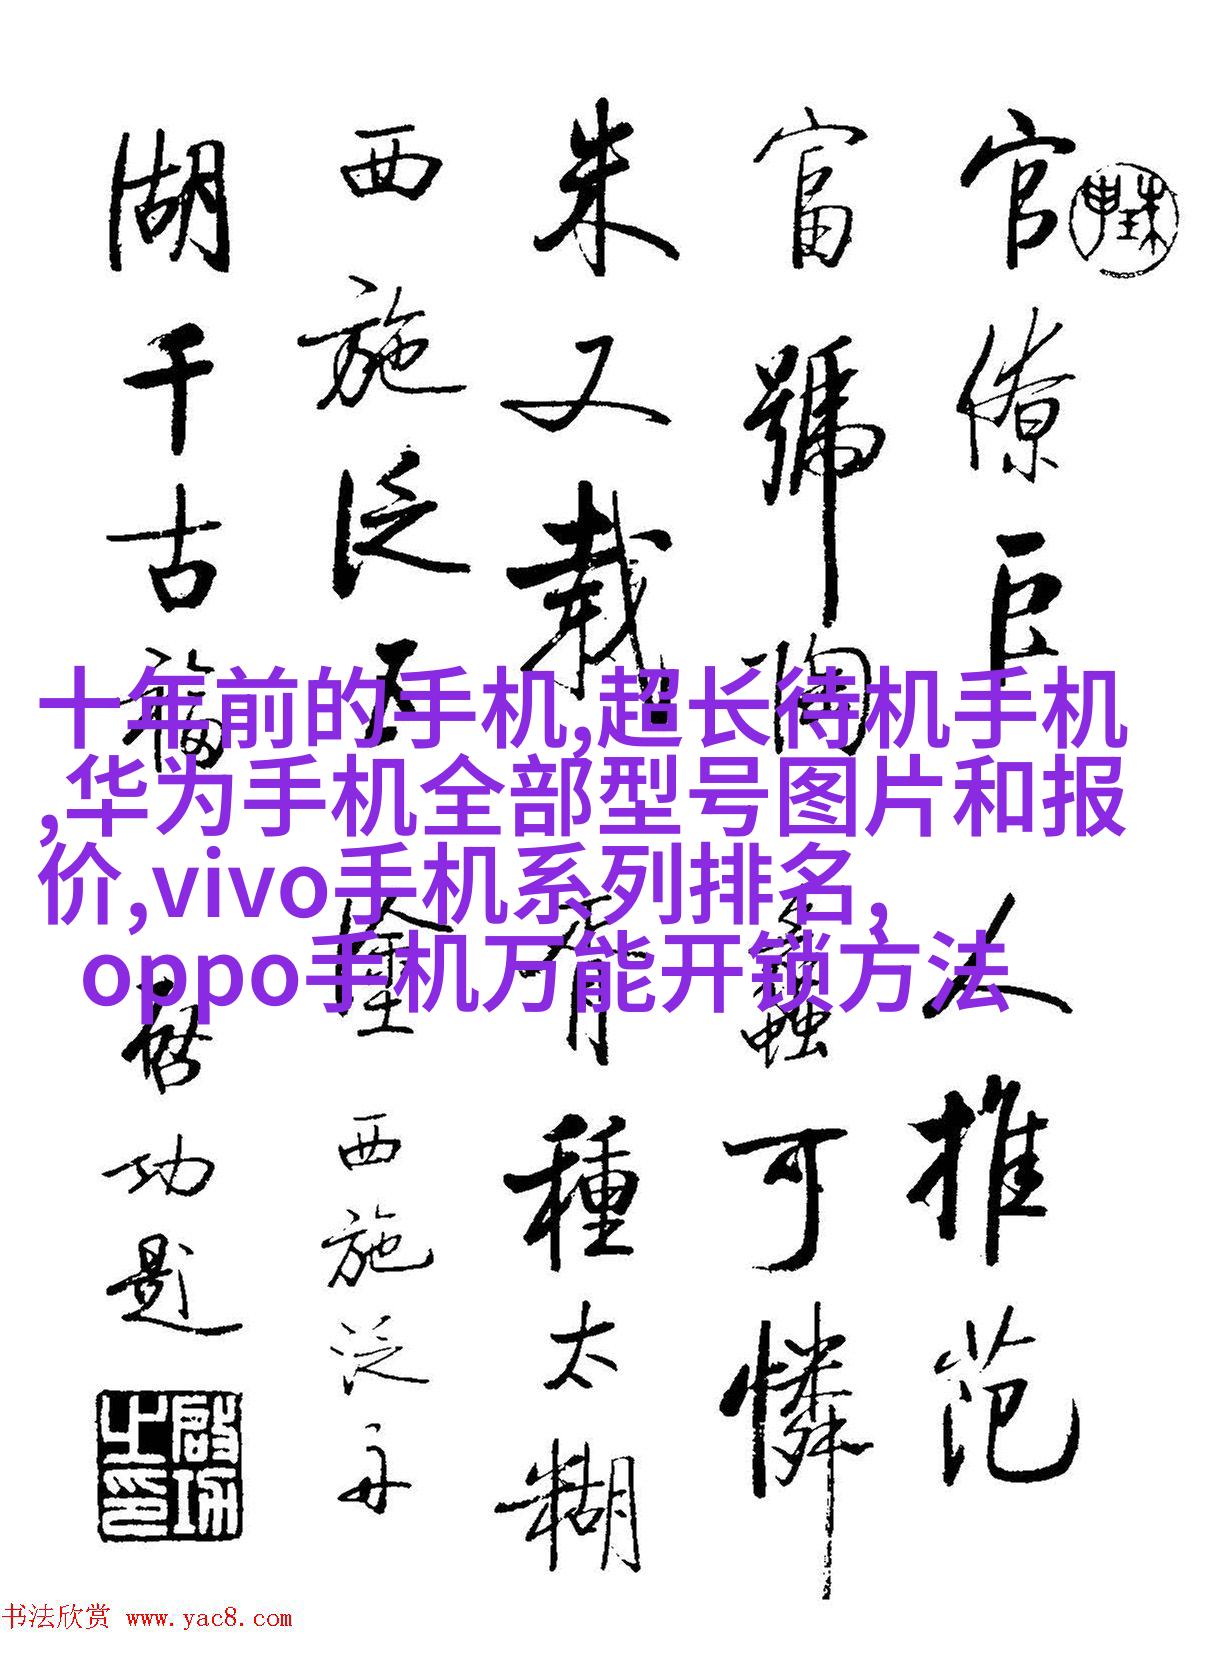 官僚巨人推范
富號陶蟲可憐
朱又載胥種太糊
西施泛五
西施泛舟
湖千古
啓功题
十年前的手机,超长待机手机
,华为手机全部型号图片和报
价,vivo手机系列排名,
oppo手机万能开锁方法
书法欣赏 www.yac8.com